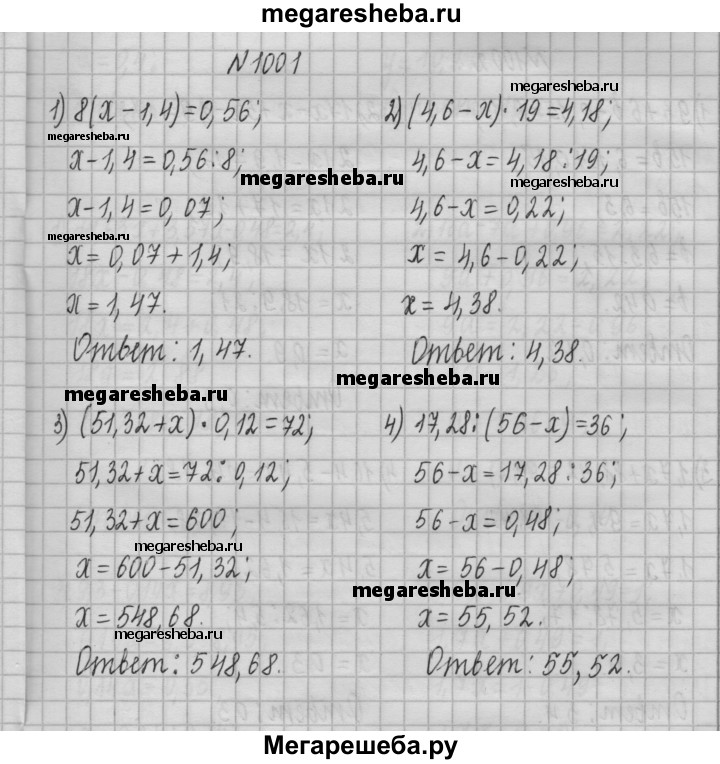 megaresheba.ru
N 1001
1) 8(x-1,4)=0,56;
megaresheba.ru
x-1,4=0,56:8;
megaresheba.ru
x-1,4=0,07;
megaresheba.ru
x=0,07+1,4;
x=1,47.
Ответ: 1,47.
megaresheba.ru
2) (4,6-x)·19=4,18;
4,6-x=4,18:19;
megaresheba.ru
4,6-x=0,22;
x=4,6-0,22;
x=4,38.
Ответ: 4,38.
megaresheba.ru
megaresheba.ru
3) (51,32+x)·0,12=72;
51,32+x=72:0,12;
51,32+x=600;
megaresheba.ru
x=600-51,32;
x=548,68.
megaresheba.ru
Ответ: 548,68.
4) 17,28:(56-x)=36;
56-x=17,28:36;
56-x=0,48;
x=56-0,48;
megaresheba.ru
x=55,52.
Ответ: 55,52.
Мегарешеба.ру